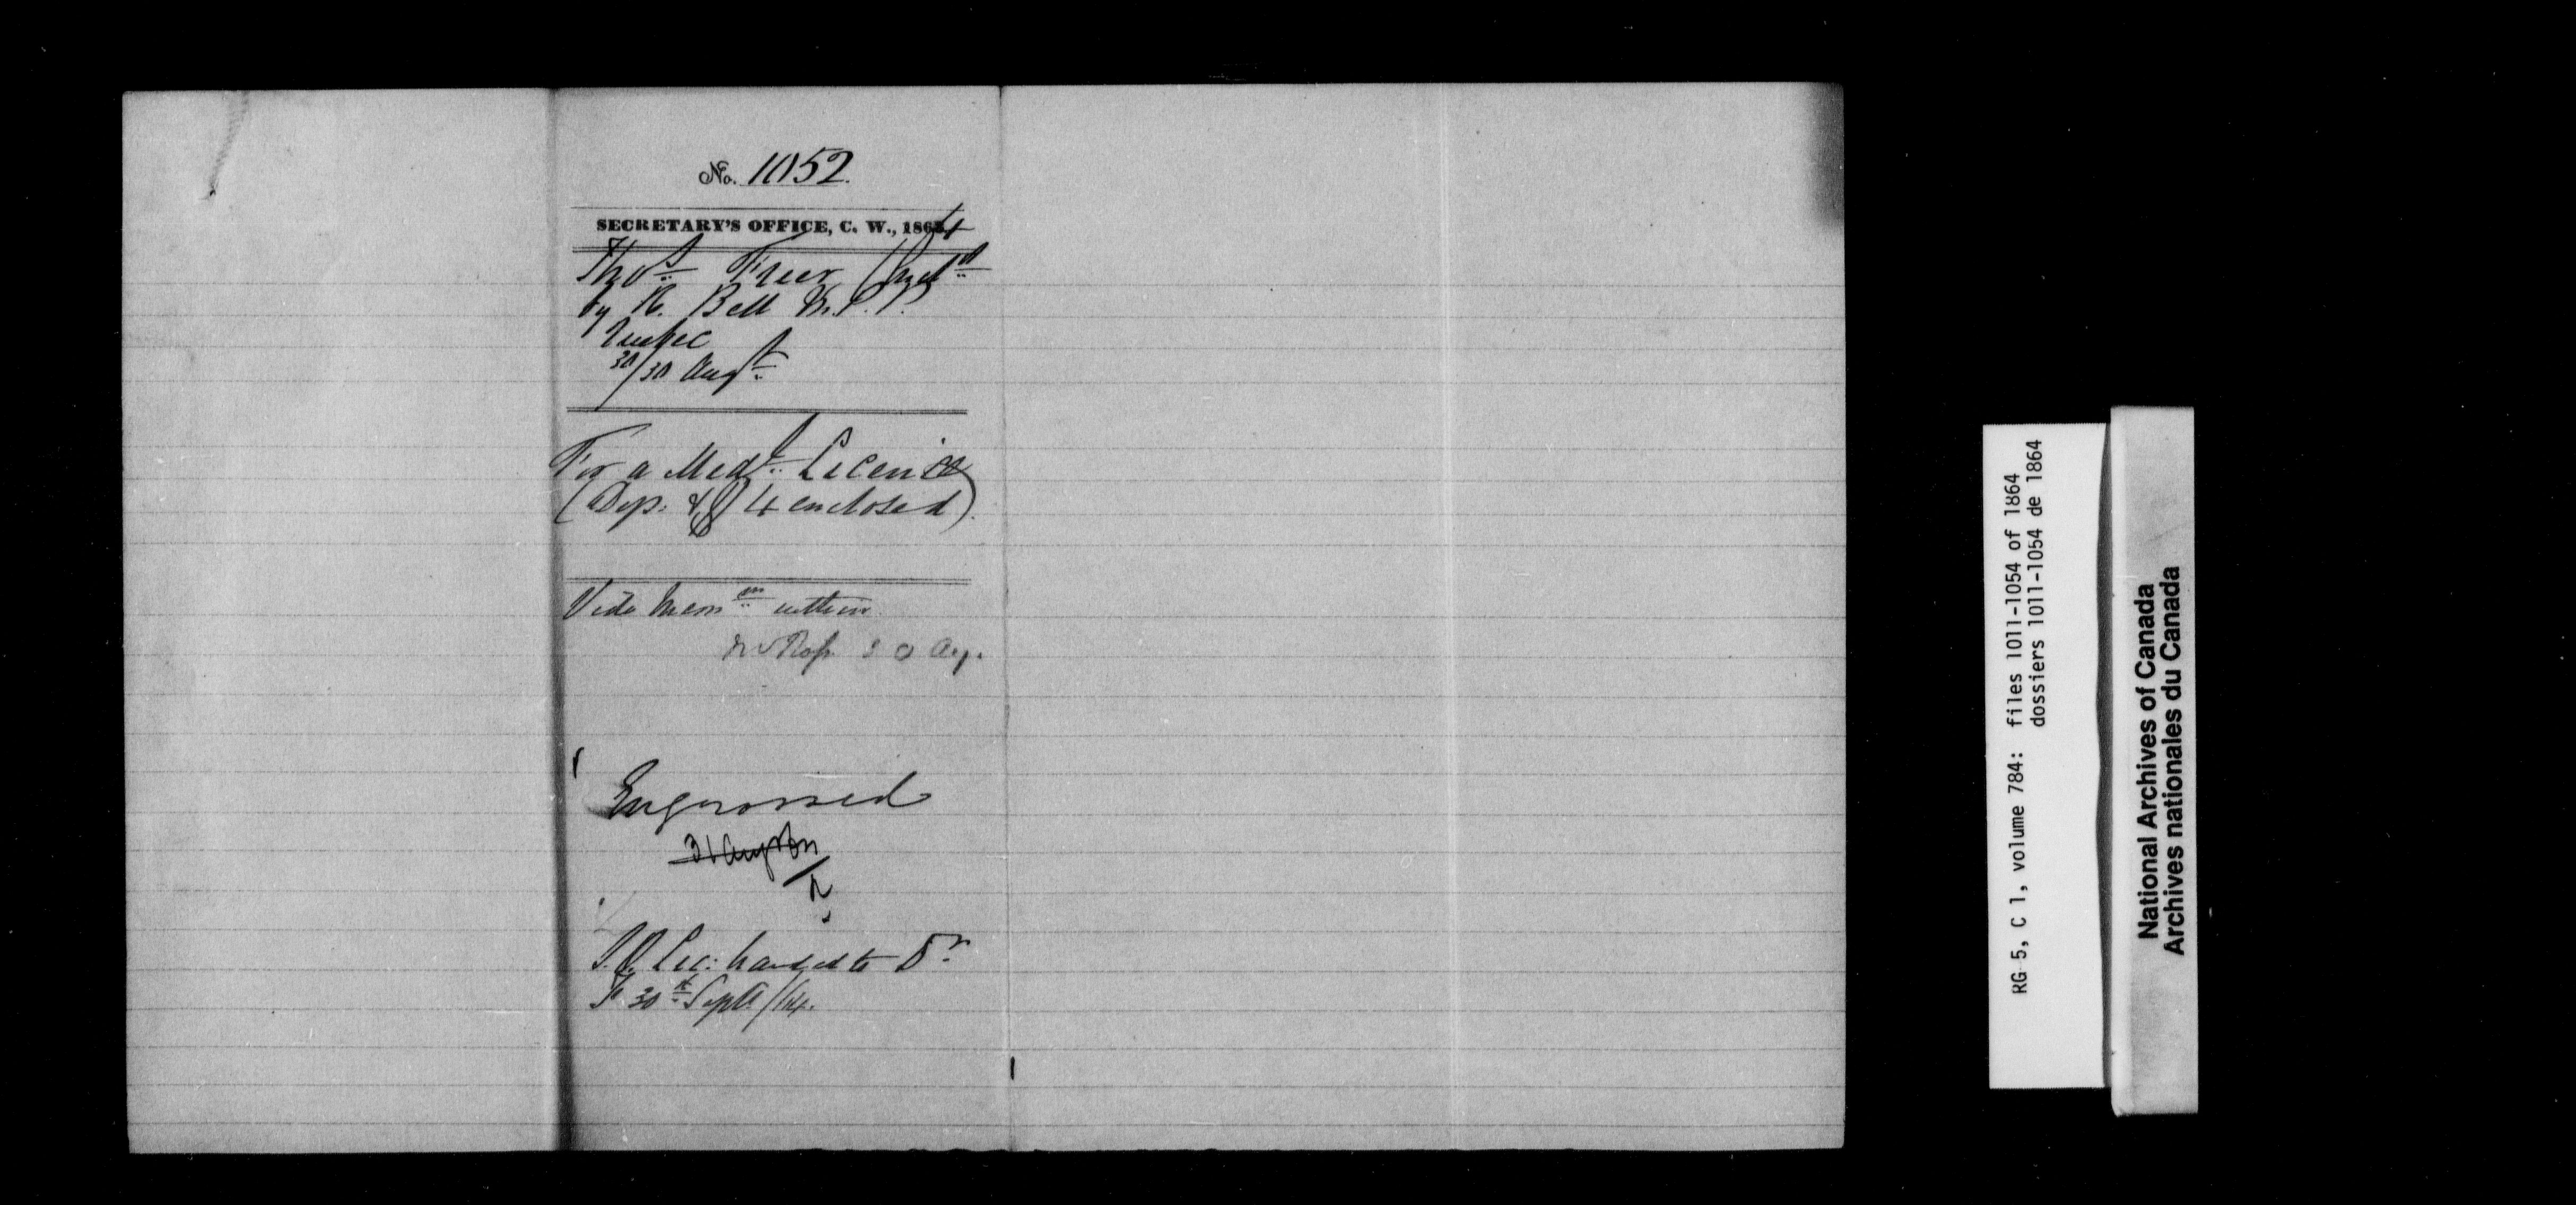 No. 1052.
SECRETARY'S OFFICE, C. W., 1864
Thos Freer
by R. Bell M.P.P.
Quebec
30/30 Augt
For a Medl License
(Dep. & $4 enclosed).
Vide Memm within
30 Aug.
Engrossed
31 Aug
Lic: handed to Dr
F 30th Sept /64.
RG 5, C 1, volume 784: files 1011-1054 of 1864
dossiers 1011-1054 de 1864
National Archives of Canada
Archives nationales du Canada